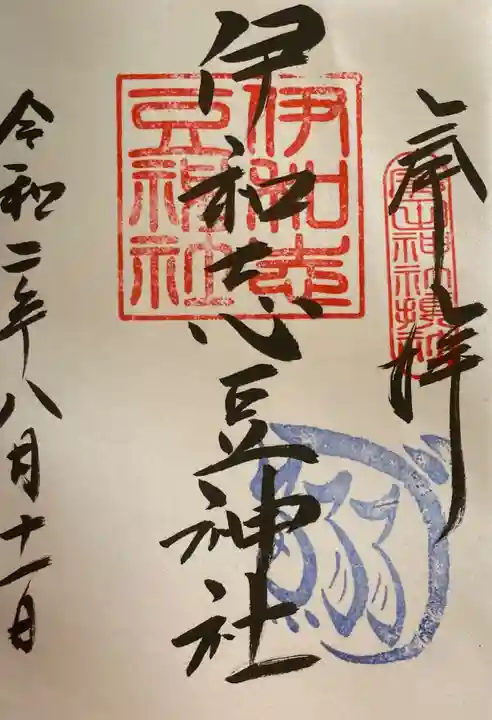 奉拝
伊和志豆神社
伊和志
豆神社
令和二年八月十一日